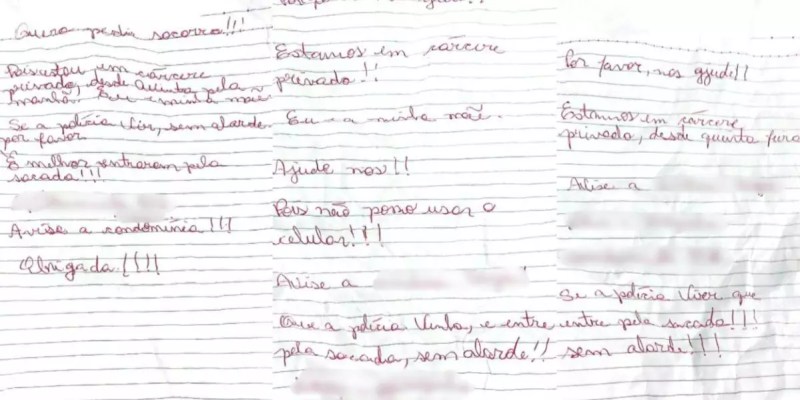 Quero pedir socorro!!!
Pois estou em cárcere
privado, desde quinta pela
manhã. Eu e minha mãe
Se a polícia vier, sem alarde
por favor
É melhor entrarem pela
sacada!!!
Avise a condomínia!!!
Obrigada!!!!
Estamos em cárcere
privado!!
Eu e a minha mãe.
Ajude nos!!
Pois não posso usar o
celular!!!
Avise a
Que a polícia venha, e entre
pela sacada, sem alarde!!
Por favor, nos ajude!!
Estamos em cárcere
privado, desde quarta feira
Avise a
Se a polícia vier que
entre pela sacada!!!
sem alarde!!!